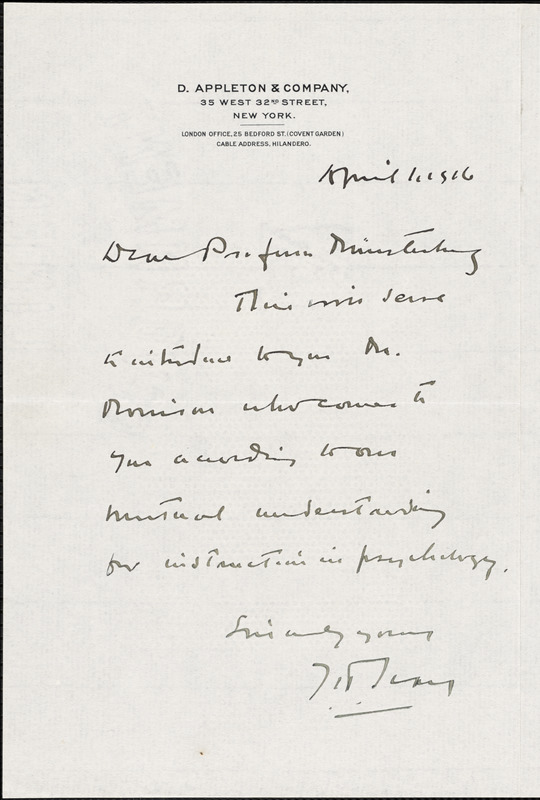 D. APPLETON & COMPANY,
35 WEST 32ND STREET,
NEW YORK.
LONDON OFFICE, 25 BEDFORD ST. (COVENT GARDEN)
CABLE ADDRESS, HILANDERO.
April 1. 1916
Dear Professor Münsterberg
This will serve
to introduce to you Mr.
Morrison who comes to
you according to our
mutual understanding
for instruction in psychology.
Sincerely yours